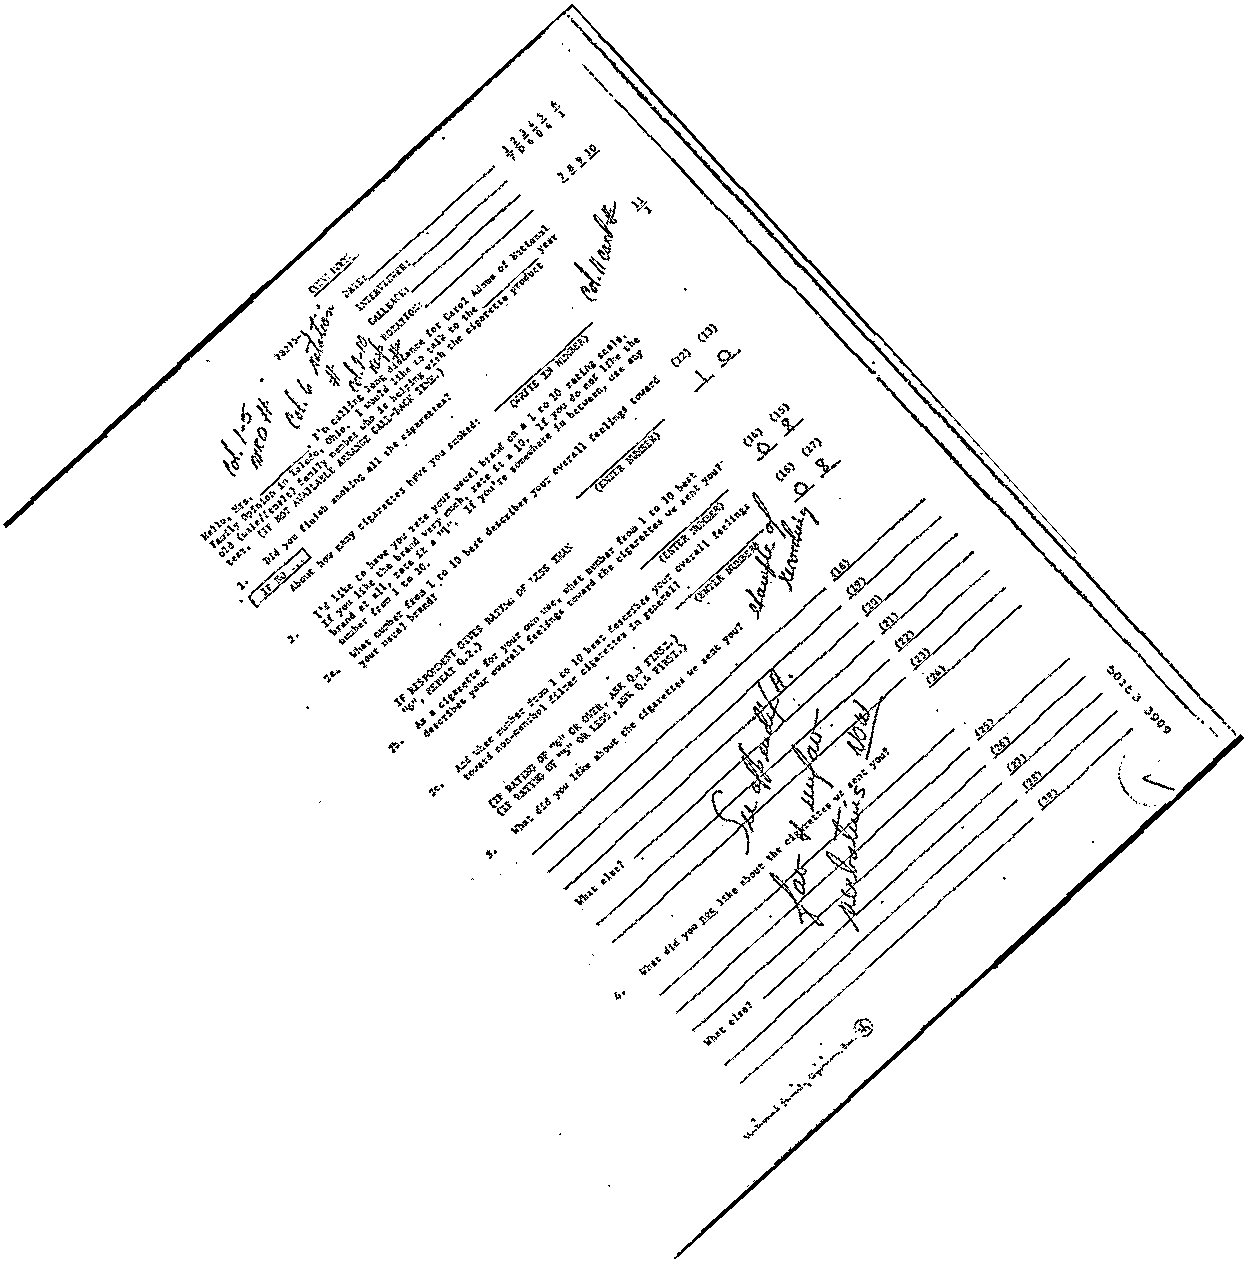 1 2 3 4 5 6
7 0 6 0 4 1
7 8 9 10
DATE:
INTERVIEWER:
CALLBACK:
ROTATION:
11
1
Col. 1-5
Col. 6 rotation
#
Hello, Mrs. I'm calling long distance for Carol Adams of National
Family Opinion in Toledo, Ohio. I would like to talk to the year
old (male/female) family member who is helping with the cigarette product
test. (IF NOT AVAILABLE ARRANGE CALL-BACK TIME.)
1. Did you finish smoking all the cigarettes?
About how many cigarettes have you smoked:
(WRITE IN NUMBER)
2. I'd like to have you rate your usual brand on a 1 to 10 rating scale.
If you like the brand very much, rate it a 10. If you do not like the
brand at all, rate it a "1". If you're somewhere in between, use any
number from 1 to 10.
2a. What number from 1 to 10 best describes your overall feelings toward
your usual brand?
(ENTER NUMBER)
(12) (13)
1 0
IF RESPONDENT GIVES RATING OF LESS THAN
"6", REPEAT Q.2.)
2b. As a cigarette for your own use, what number from 1 to 10 best
describes your overall feelings toward the cigarettes we sent you?
(ENTER NUMBER)
(14) (15)
0 8
2c. And what number from 1 to 10 best describes your overall feelings
toward non-menthol filter cigarettes in general?
(ENTER NUMBER)
(16) (17)
0 8
(IF RATING OF "6" OR OVER, ASK Q.3 FIRST.)
(IF RATING OF "5" OR LESS, ASK Q.4 FIRST.)
3. What did you like about the cigarettes we sent you?
(18)
(19)
(20)
What else?
(21)
(22)
(23)
(24)
4. What did you not like about the cigarettes we sent you?
(25)
(26)
(27)
What else?
(28)
(29)
verbatims NOW
5026.3 3909